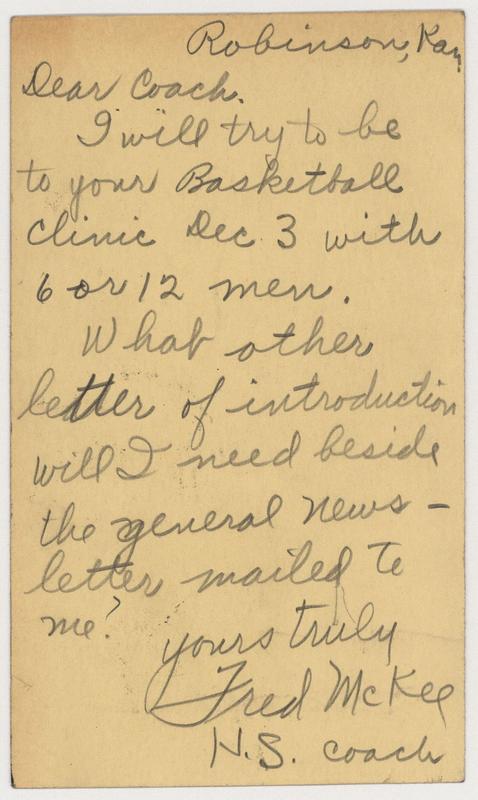 Robinson, Kan.
Dear Coach.
I will try to be
to your Basketball
clinic Dec 3 with
6 or 12 men.
What other
letter of introduction
will I need beside
the general news-
letter mailed to
me?
yours truly
Fred McKee
H.S. coach